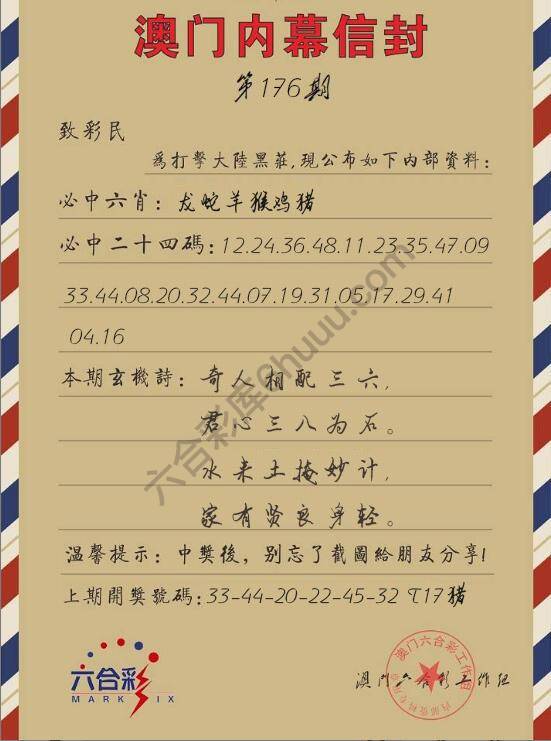 澳门内幕信封
第176期
致彩民
為打擊大陸黑莊,現公布如下内部資料:
必中六肖: 龙蛇羊猴鸡猪
必中二十四碼: 12.24.36.48.11.23.35.47.09
33.44.08.20.32.44.07.19.31.05.17.29.41
04.16
本期玄機詩: 奇人相配三六,
君心三八为石。
水来土掩妙计,
家有贤良身轻。
温馨提示: 中獎後, 别忘了截圖給朋友分享!
上期開獎號碼:33-44-20-22-45-32 T17猪
六合彩
MARK SIX
澳门六合彩工作组
澳门六合彩工作组
六合彩库ehuuu.com